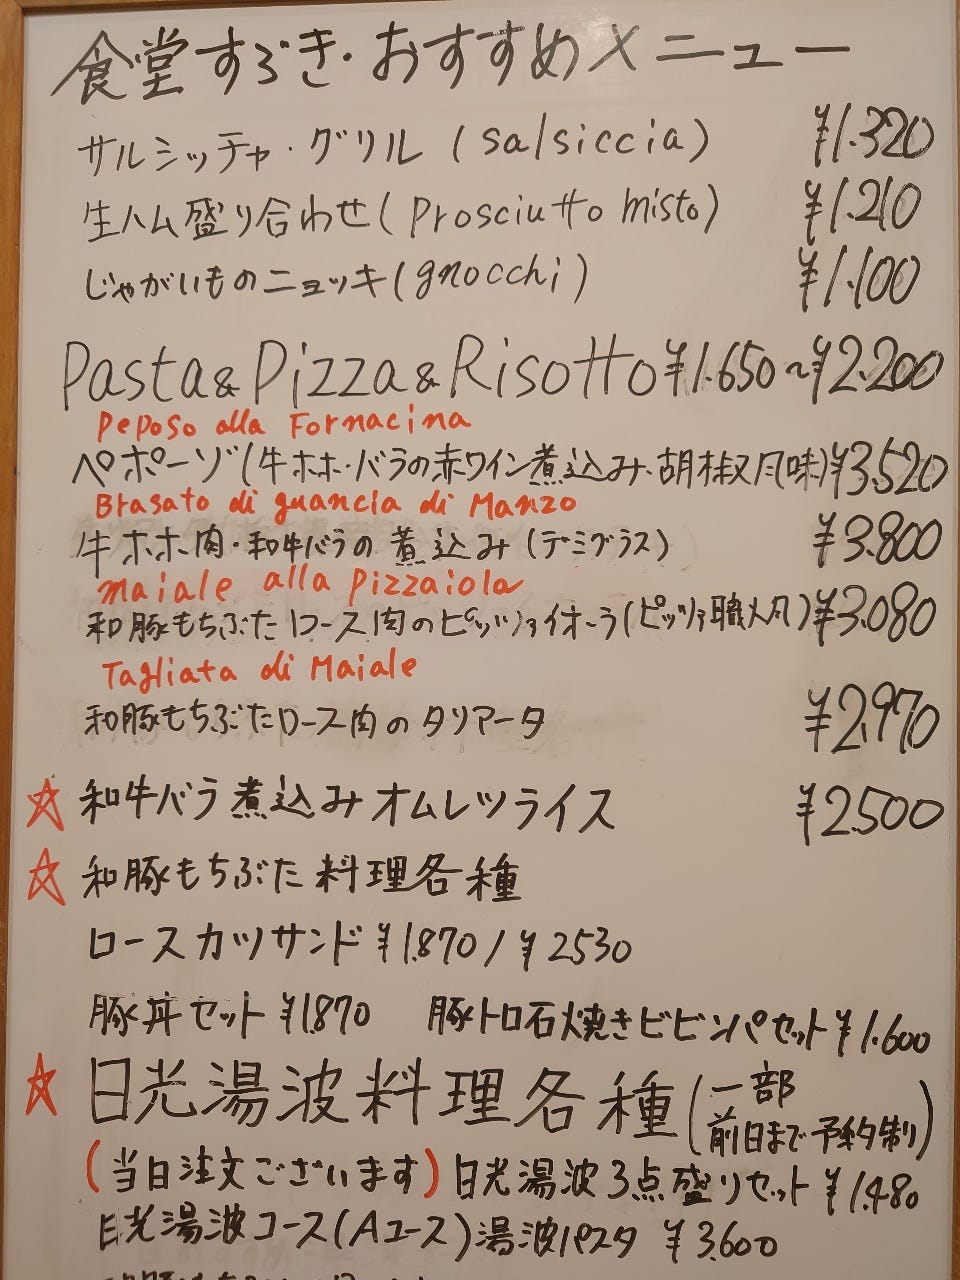 食堂すぶき・おすすめメニュー
サルシッチャ・グリル (salsiccia) ¥1.320
生ハム盛り合わせ(Prosciutto misto) ¥1.210
じゃがいものニョッキ(gnocchi) ¥1.100
Pasta&Pizza&Risotto¥1.650~¥2.200
Peposo alla Fornacina
ペポーゾ(牛ホホ・バラの赤ワイン煮込み、胡椒風味)¥3.520
Brasato di guancia di Manzo
牛ホホ肉・和牛バラの煮込み(デミグラス) ¥3.800
maiale alla Pizzaiola
和豚もちぶたロース肉のピッツァイオーラ(ピッツァ職人風)¥3.080
Tagliata di Maiale
和豚もちぶたロース肉のタリアータ ¥2.970
☆和牛バラ煮込みオムレツライス ¥2.500
☆和豚もちぶた料理各種
ロースカツサンド¥1.870/¥2530
豚丼セット¥1.870 豚トロ石焼きビビンバセット¥1.600
☆日光湯波料理各種(一部前日まで予約制)
(当日注文ございます)日光湯波3点盛りセット¥1.480
日光湯波コース(Aコース)湯波パスタ ¥3.600